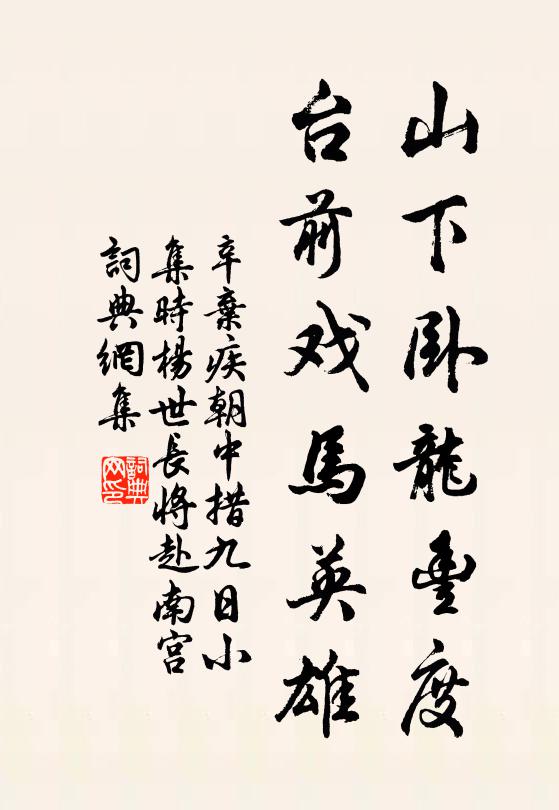 山下卧龍豊度
台前戏馬英雄
辛棄疾朝中措九日小
集時楊世長將赴南宫
詞典網集
詞典
网印